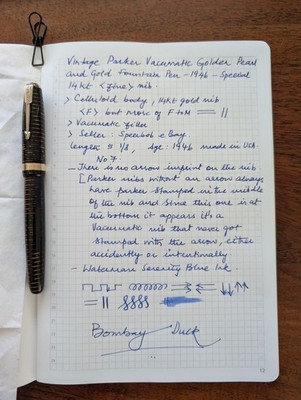 Vintage Parker Vacumatic Golden Pearl
and Gold Fountain Pen - 1946 - Special
14kt <fine> nib.
> Celluloid body, 14kt gold nib
<F> but more of F to M
> Vacumatic filler
> Seller: Speerbob eBay
length 5 1/8, Age: 1946 made in USA
No 7.
- There is no arrow imprint on the nib
[Parker nibs without an arrow always
have parker stamped in the middle
of the nib and since this one is at
the bottom it appears it's a
Vacumatic nib that never got
stamped with the arrow, either
accidently or intentionally
- Waterman Serenity Blue Ink.
Bombay Duck
12